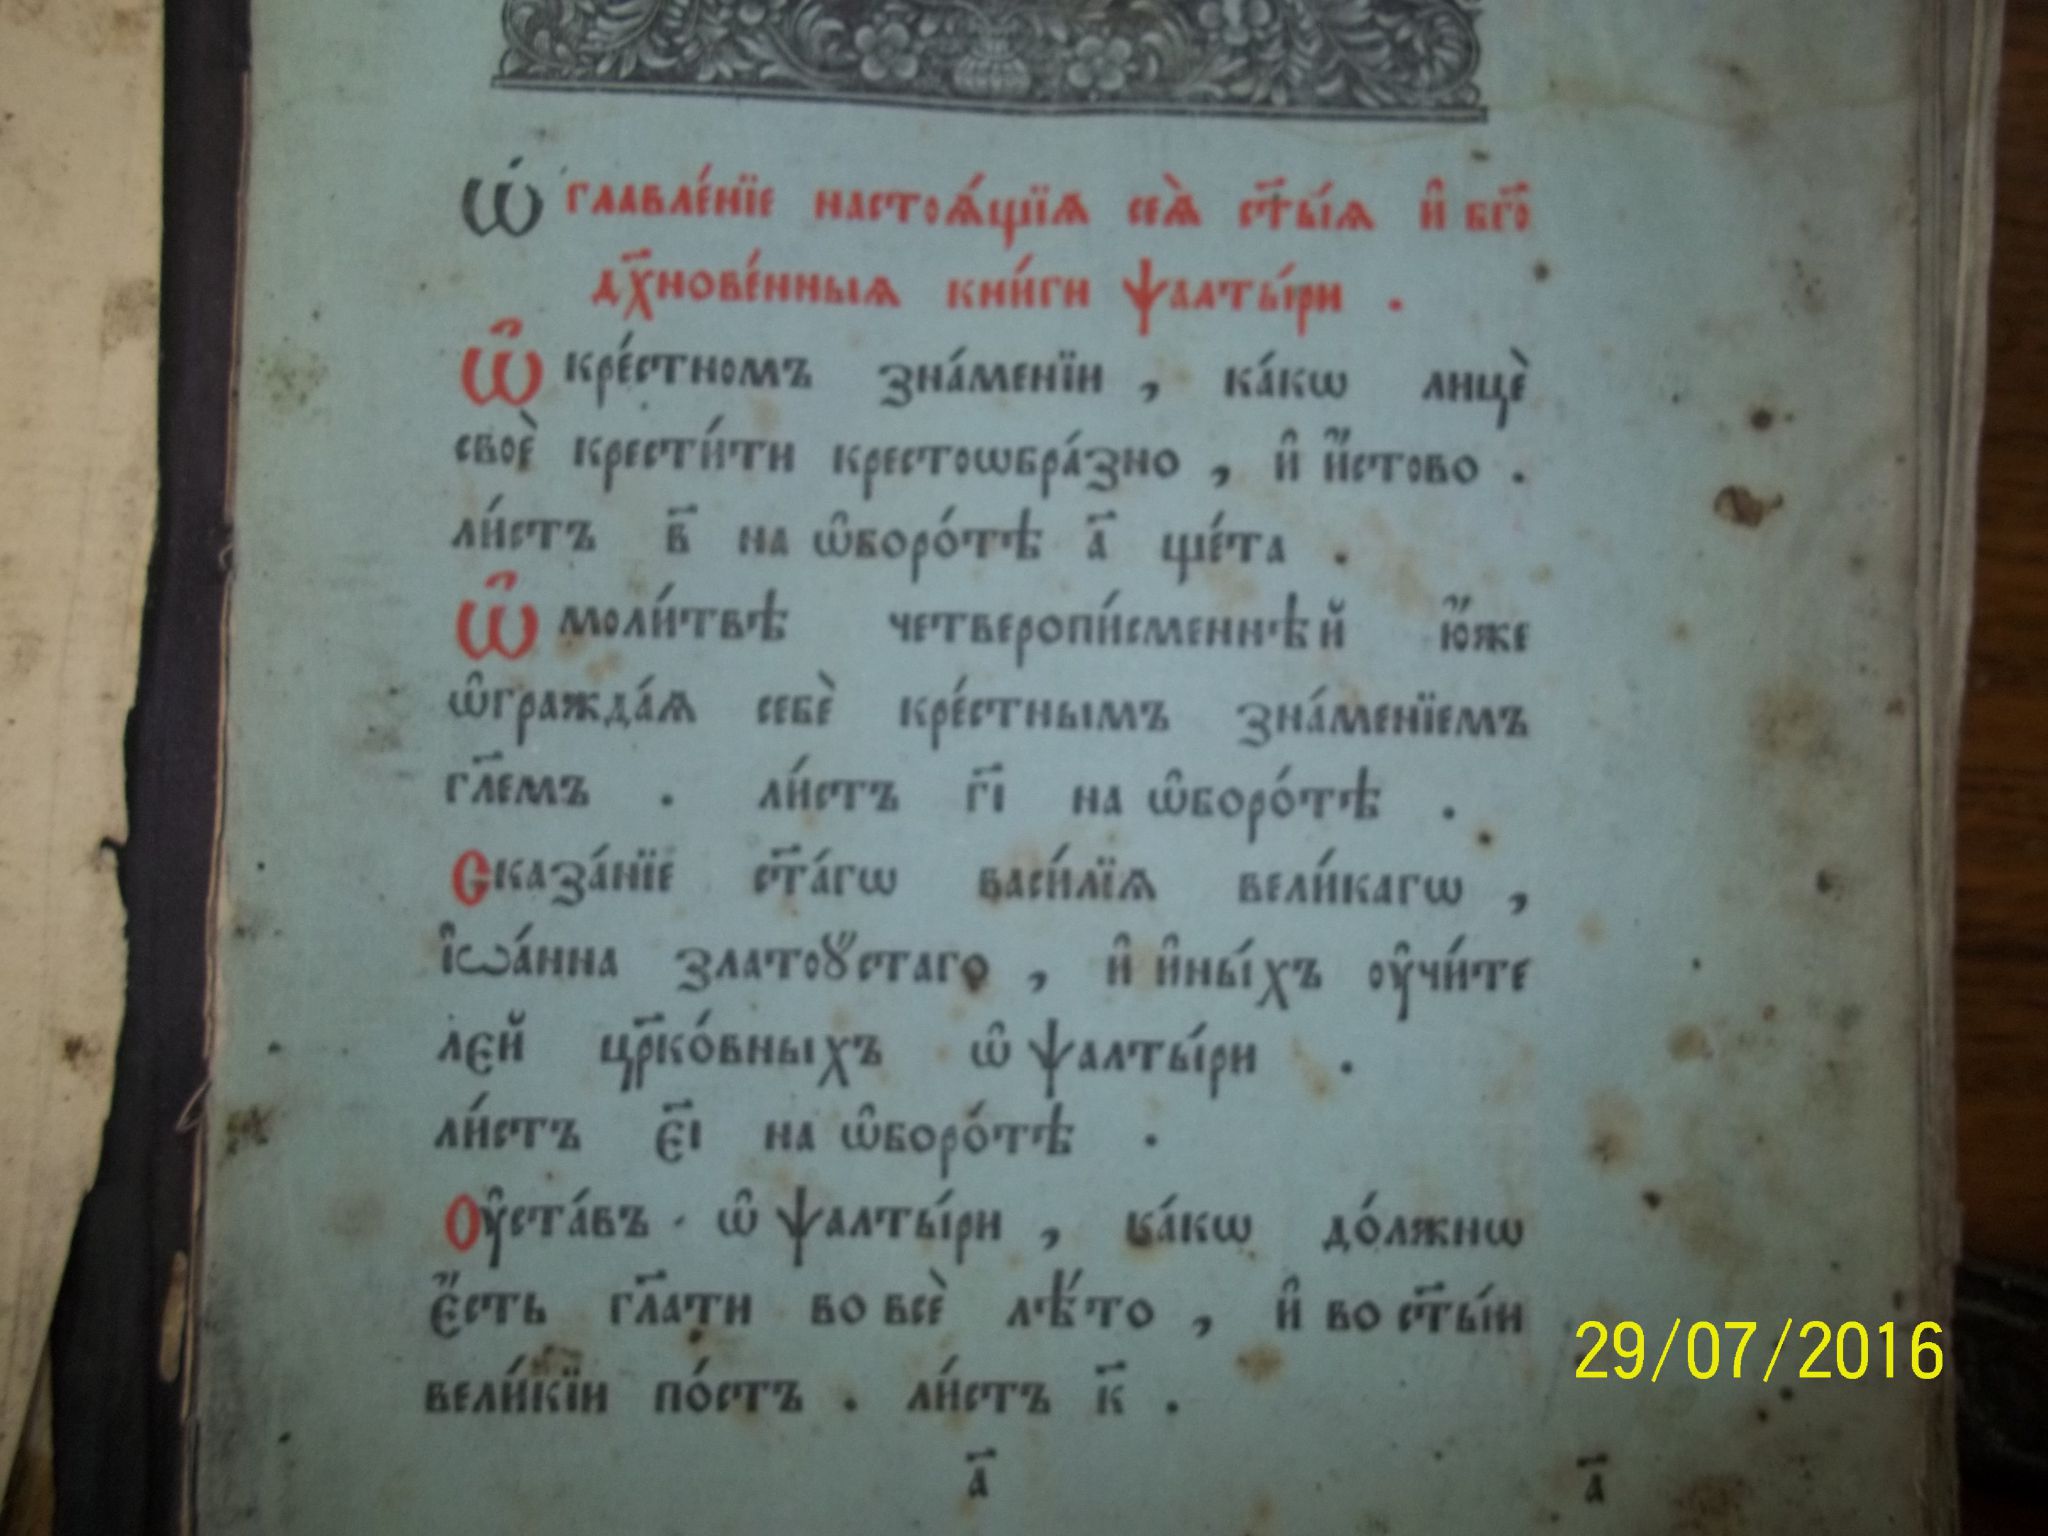 Ѡ҆главле́нїе настоѧ́щїѧ сеѧ̀ ст҃ы́ѧ и҆ бг҃о
дх҃нове́нныѧ кни́ги ѱалты́ри .
Ѡ҆ кре́стномъ зна́менїи , ка́кѡ лицѐ
своѐ крести́ти крестоѡбра́зно , и҆ и҆́стово .
ли́стъ в҃ на ѡ҆боро́тѣ а҃ щє́та .
Ѡ҆ моли́твѣ четверопи́сменнѣй ю҆́же
ѡ҆гражда́ѧ себѐ кре́стнымъ зна́менїемъ
гл҃емъ . ли́стъ г҃і на ѡ҆боро́тѣ .
Сказа́нїе ст҃а́гѡ васи́лїѧ вели́кагѡ ,
і҆ѡа́нна златоꙋ́стаго , и҆ и҆ны́хъ оу҆чи́те
лєй цр҃ко́вныхъ ѡ҆ ѱалты́ри .
ли́стъ є҃і на ѡ҆боро́тѣ .
Оу҆ста́въ ѡ҆ ѱалты́ри , ка́кѡ до́лжнѡ
є҆́сть гл҃ати во всѐ лѣ́то , и҆ во ст҃ы́и
вели́кїи по́стъ . ли́стъ к҃ .
а҃ а҃
29/07/2016